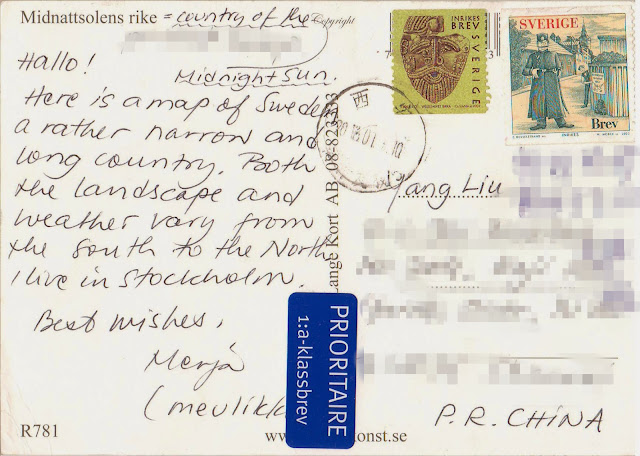 Midnattsolens rike = country of the
Midnight Sun.
Copyright
Hallo!
Here is a map of Sweden
a rather narrow and
long country. Both
the landscape and
weather vary from
the south to the North
I live in Stockholm.
Best wishes,
Merja
(meulikk
R781
Lange Kort AB 08-82
INRIKES
BREV
SVERIGE
SVERIGE
Brev
Yang Liu
P.R. CHINA
PRIORITAIRE
1:a-klassbrev
www. onst.se